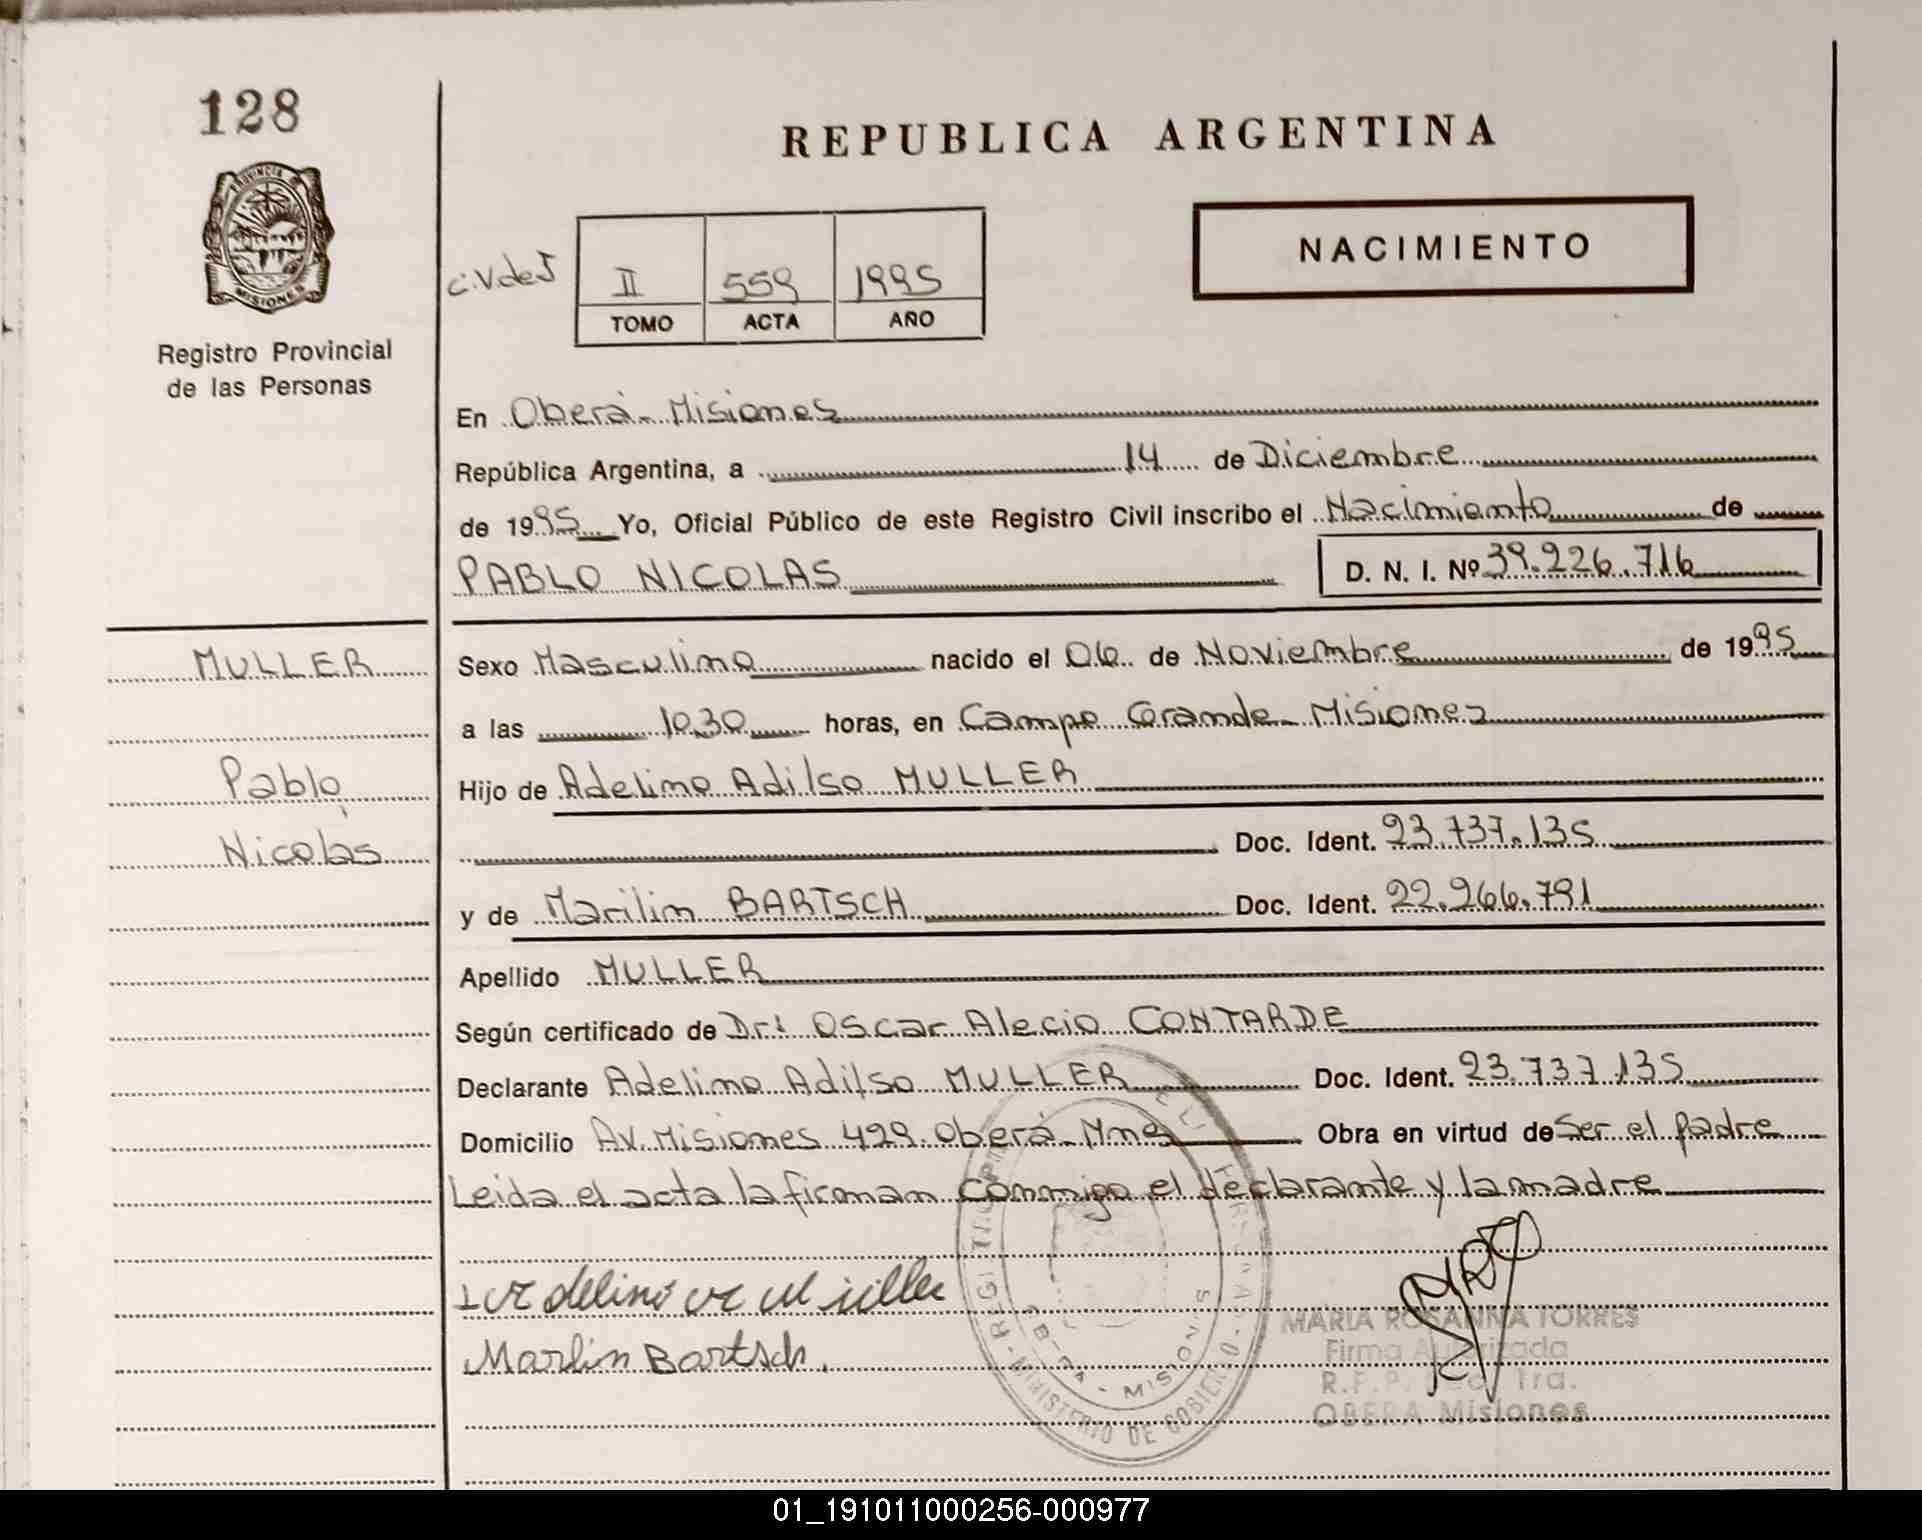 128
REPUBLICA ARGENTINA
PROVINCIA DE
MISIONES
Registro Provincial
de las Personas
NACIMIENTO
C.V.de J
II 559 1995
TOMO ACTA AÑO
En Oberá - Misiones
República Argentina, a 14 de Diciembre
de 1995 Yo, Oficial Público de este Registro Civil inscribo el Nacimiento de
PABLO NICOLAS D. N. I. Nº 39.226.716
MULLER
Pablo
Nicolás
Sexo Masculino nacido el 06 de Noviembre de 1995
a las 10.30 horas, en Campo Grande - Misiones
Hijo de Adelino Adilso MULLER
Doc. Ident. 23.737.135
y de Marilin BARTSCH Doc. Ident. 22.266.791
Apellido MULLER
Según certificado de Dr: Oscar Alecio CONTARDE
Declarante Adelino Adilso MULLER Doc. Ident. 23.737.135
Domicilio Av. Misiones 429. Oberá - Mnes Obra en virtud de Ser el padre
Leida el acta la firman conmigo el declarante y la madre
Marlin Bartsch.
MARIA ROSANNA TORRES
Firma Autorizada
R.P.P. 1ra.
OBERA Misiones
MINISTERIO DE GOBIERNO
MISIONES
01_191011000256-000977